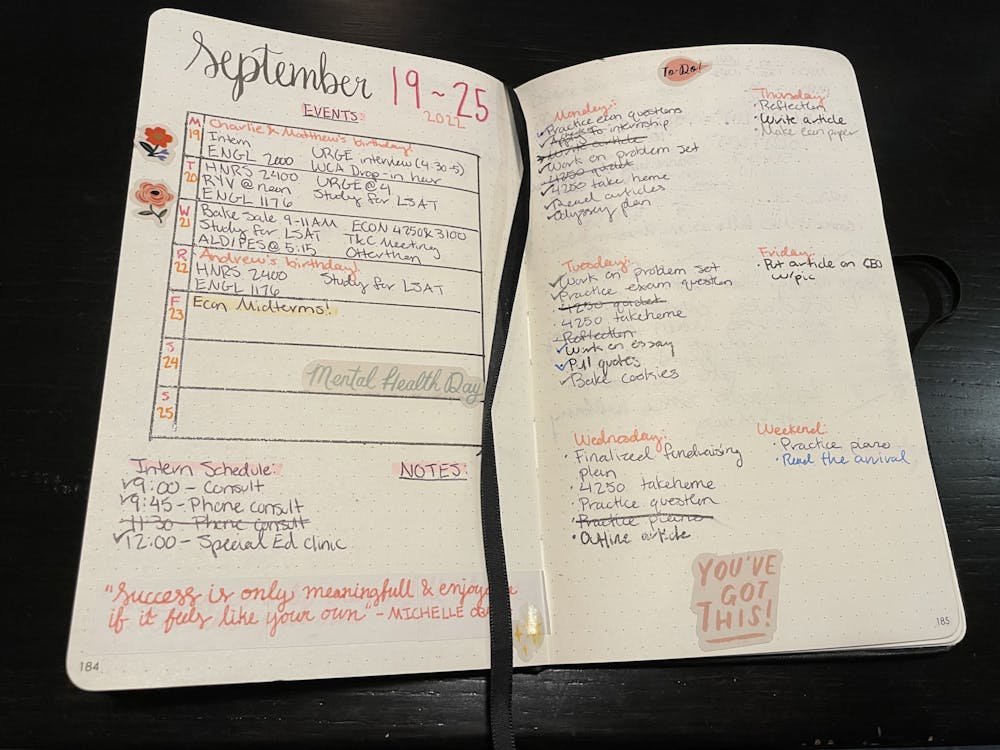 September 19~25
2022
EVENTS:
M
19
Charlie & Matthew's birthday!
Intern URGE interview (4:30-5)
ENGL 2000 WCA Drop-in hour
T
20
HNRS 2400 URGE @ 4
RYV @ noon Study for LSAT
ENGL 1176
W
21
Bake Sale 9-11AM ECON 4250 & 3100
Study for LSAT T&C Meeting
ALDIPES @ 5:15 Otterthon
R
22
Andrew's birthday!
HNRS 2400 Study for LSAT
ENGL 1176
F
23
Econ Midterms!
S
24
Mental Health Day
S
25
Intern Schedule:
9:00 - Consult
9:45 - Phone consult
11:30 - Phone consult
12:00 - Special Ed Clinic
NOTES:
"Success is only meaningfull & enjoya
if it feels like your own" - MICHELLE OBA
184
TO-DO!
Monday:
Practice econ questions
to internship
Write article
Work on problem set
4250
4250 take home
Read articles
Odyssey plan
Tuesday:
Work on problem set
Practice exam question
4250
4250 takehome
Reflection
Work on essay
Pull quotes
Bake cookies
Wednesday:
Finalized fundraising
plan
4250 takehome
Practice question
Practice piano
Outline article
Thursday:
Reflection
Write article
Make econ paper
Friday:
Put article on
w/pic
Weekend:
Practice piano
Read the arrival
YOU'VE
GOT
THIS!
185